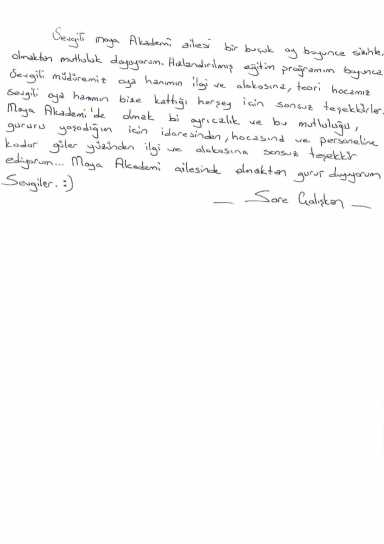 Sevgili maya Akademi ailesi bir buçuk ay boyunca sizinle
olmaktan mutluluk duyuyorum. Hızlandırılmış eğitim programım boyunca
Sevgili müdüremiz oya hanımın ilgi ve alakasına, teori hocamız
sevgili oya hanımın bize kattığı herşey için sonsuz teşekkürler.
Maya Akademi'de olmak bi ayrıcalık ve bu mutluluğu,
gururu yaşadığım için idaresinden, hocasınd ve personeline
kadar güler yüzünden ilgi ve alakasına sonsuz teşekkür
ediyorum... Maya Akademi ailesinde olmaktan gurur duyuyorum
Sevgiler. :)
— Sare Çalışkan —